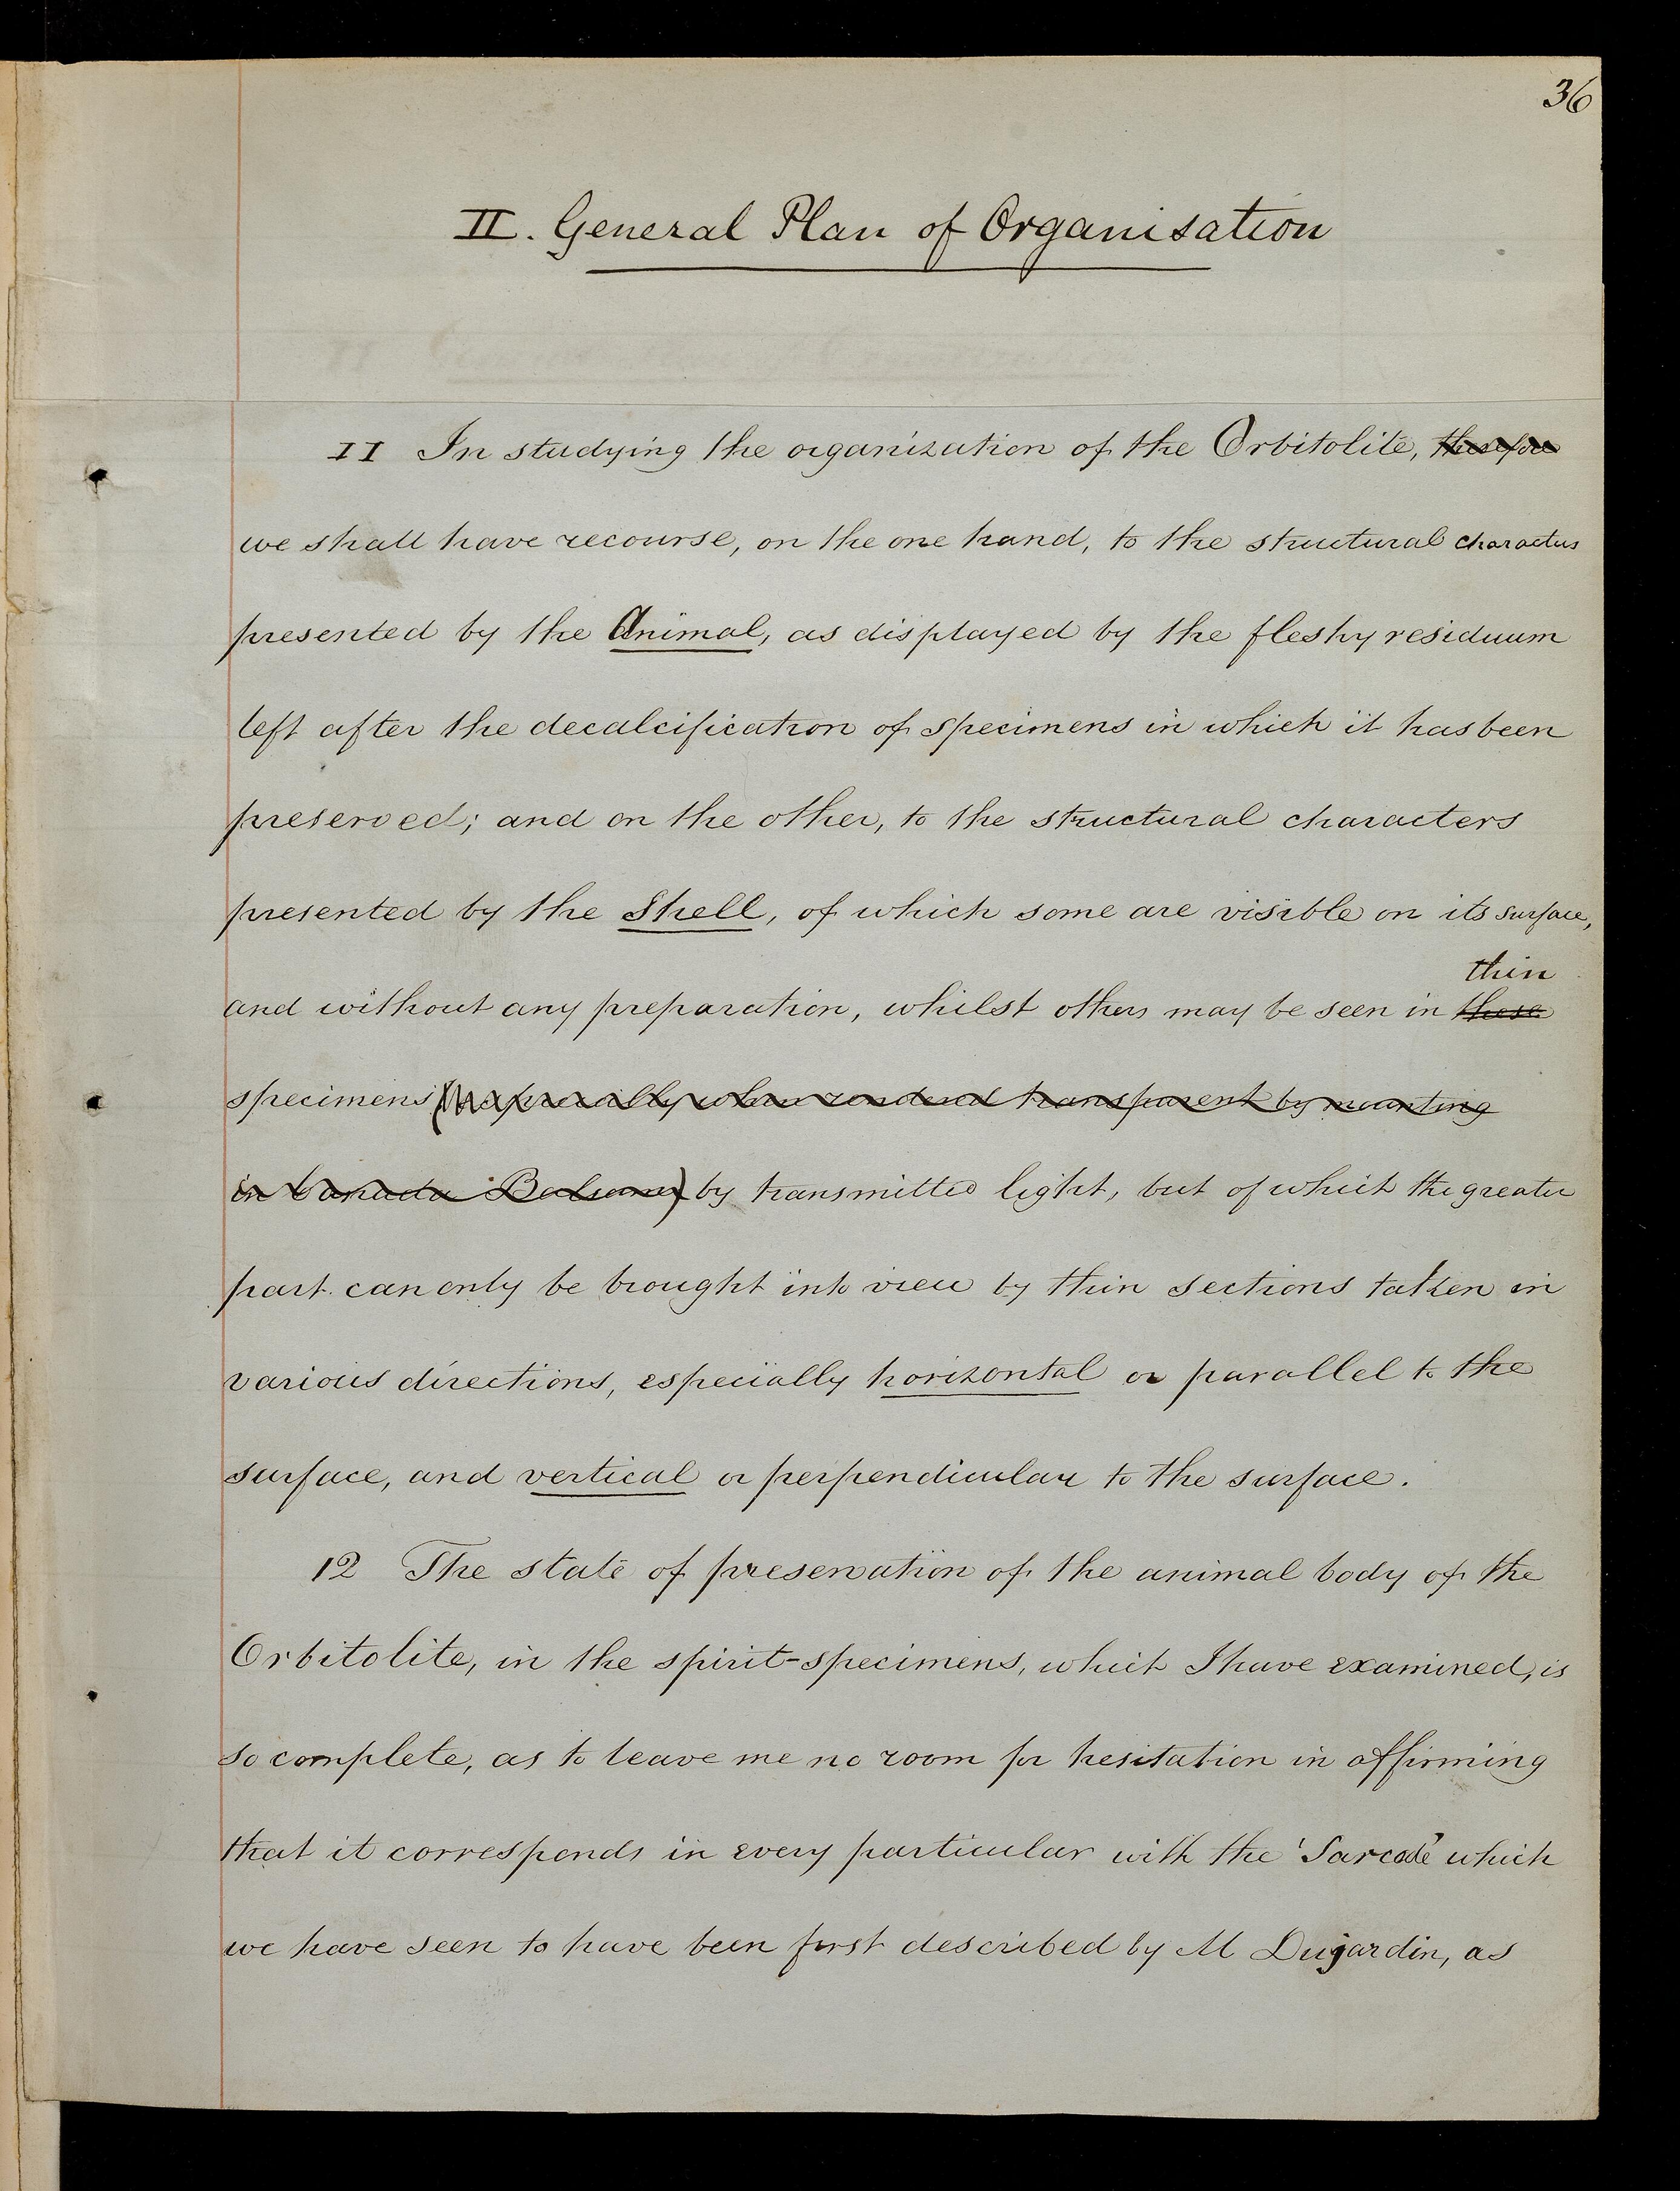 36
II. General Plan of Organisation
11 In studying the organization of the Orbitolite, therefore
we shall have recourse, on the one hand, to the structural characters
presented by the Animal, as displayed by the fleshy residuum
left after the decalcification of specimens in which it has been
preserved; and on the other, to the structural characters
presented by the Shell, of which some are visible on its surface,
thin
and without any preparation, whilst others may be seen in these
specimens (especially when rendered transparent by mounting
in Canada Balsam) by transmitted light, but of which the greater
part can only be brought into view by thin sections taken in
various directions, especially horizontal or parallel to the
surface, and vertical or perpendicular to the surface.
12 The state of preservation of the animal body of the
Orbitolite, in the spirit-specimens, which I have examined, is
so complete, as to leave me no room for hesitation in affirming
that it corresponds in every particular with the 'Sarcode' which
we have seen to have been first described by M Dujardin, as